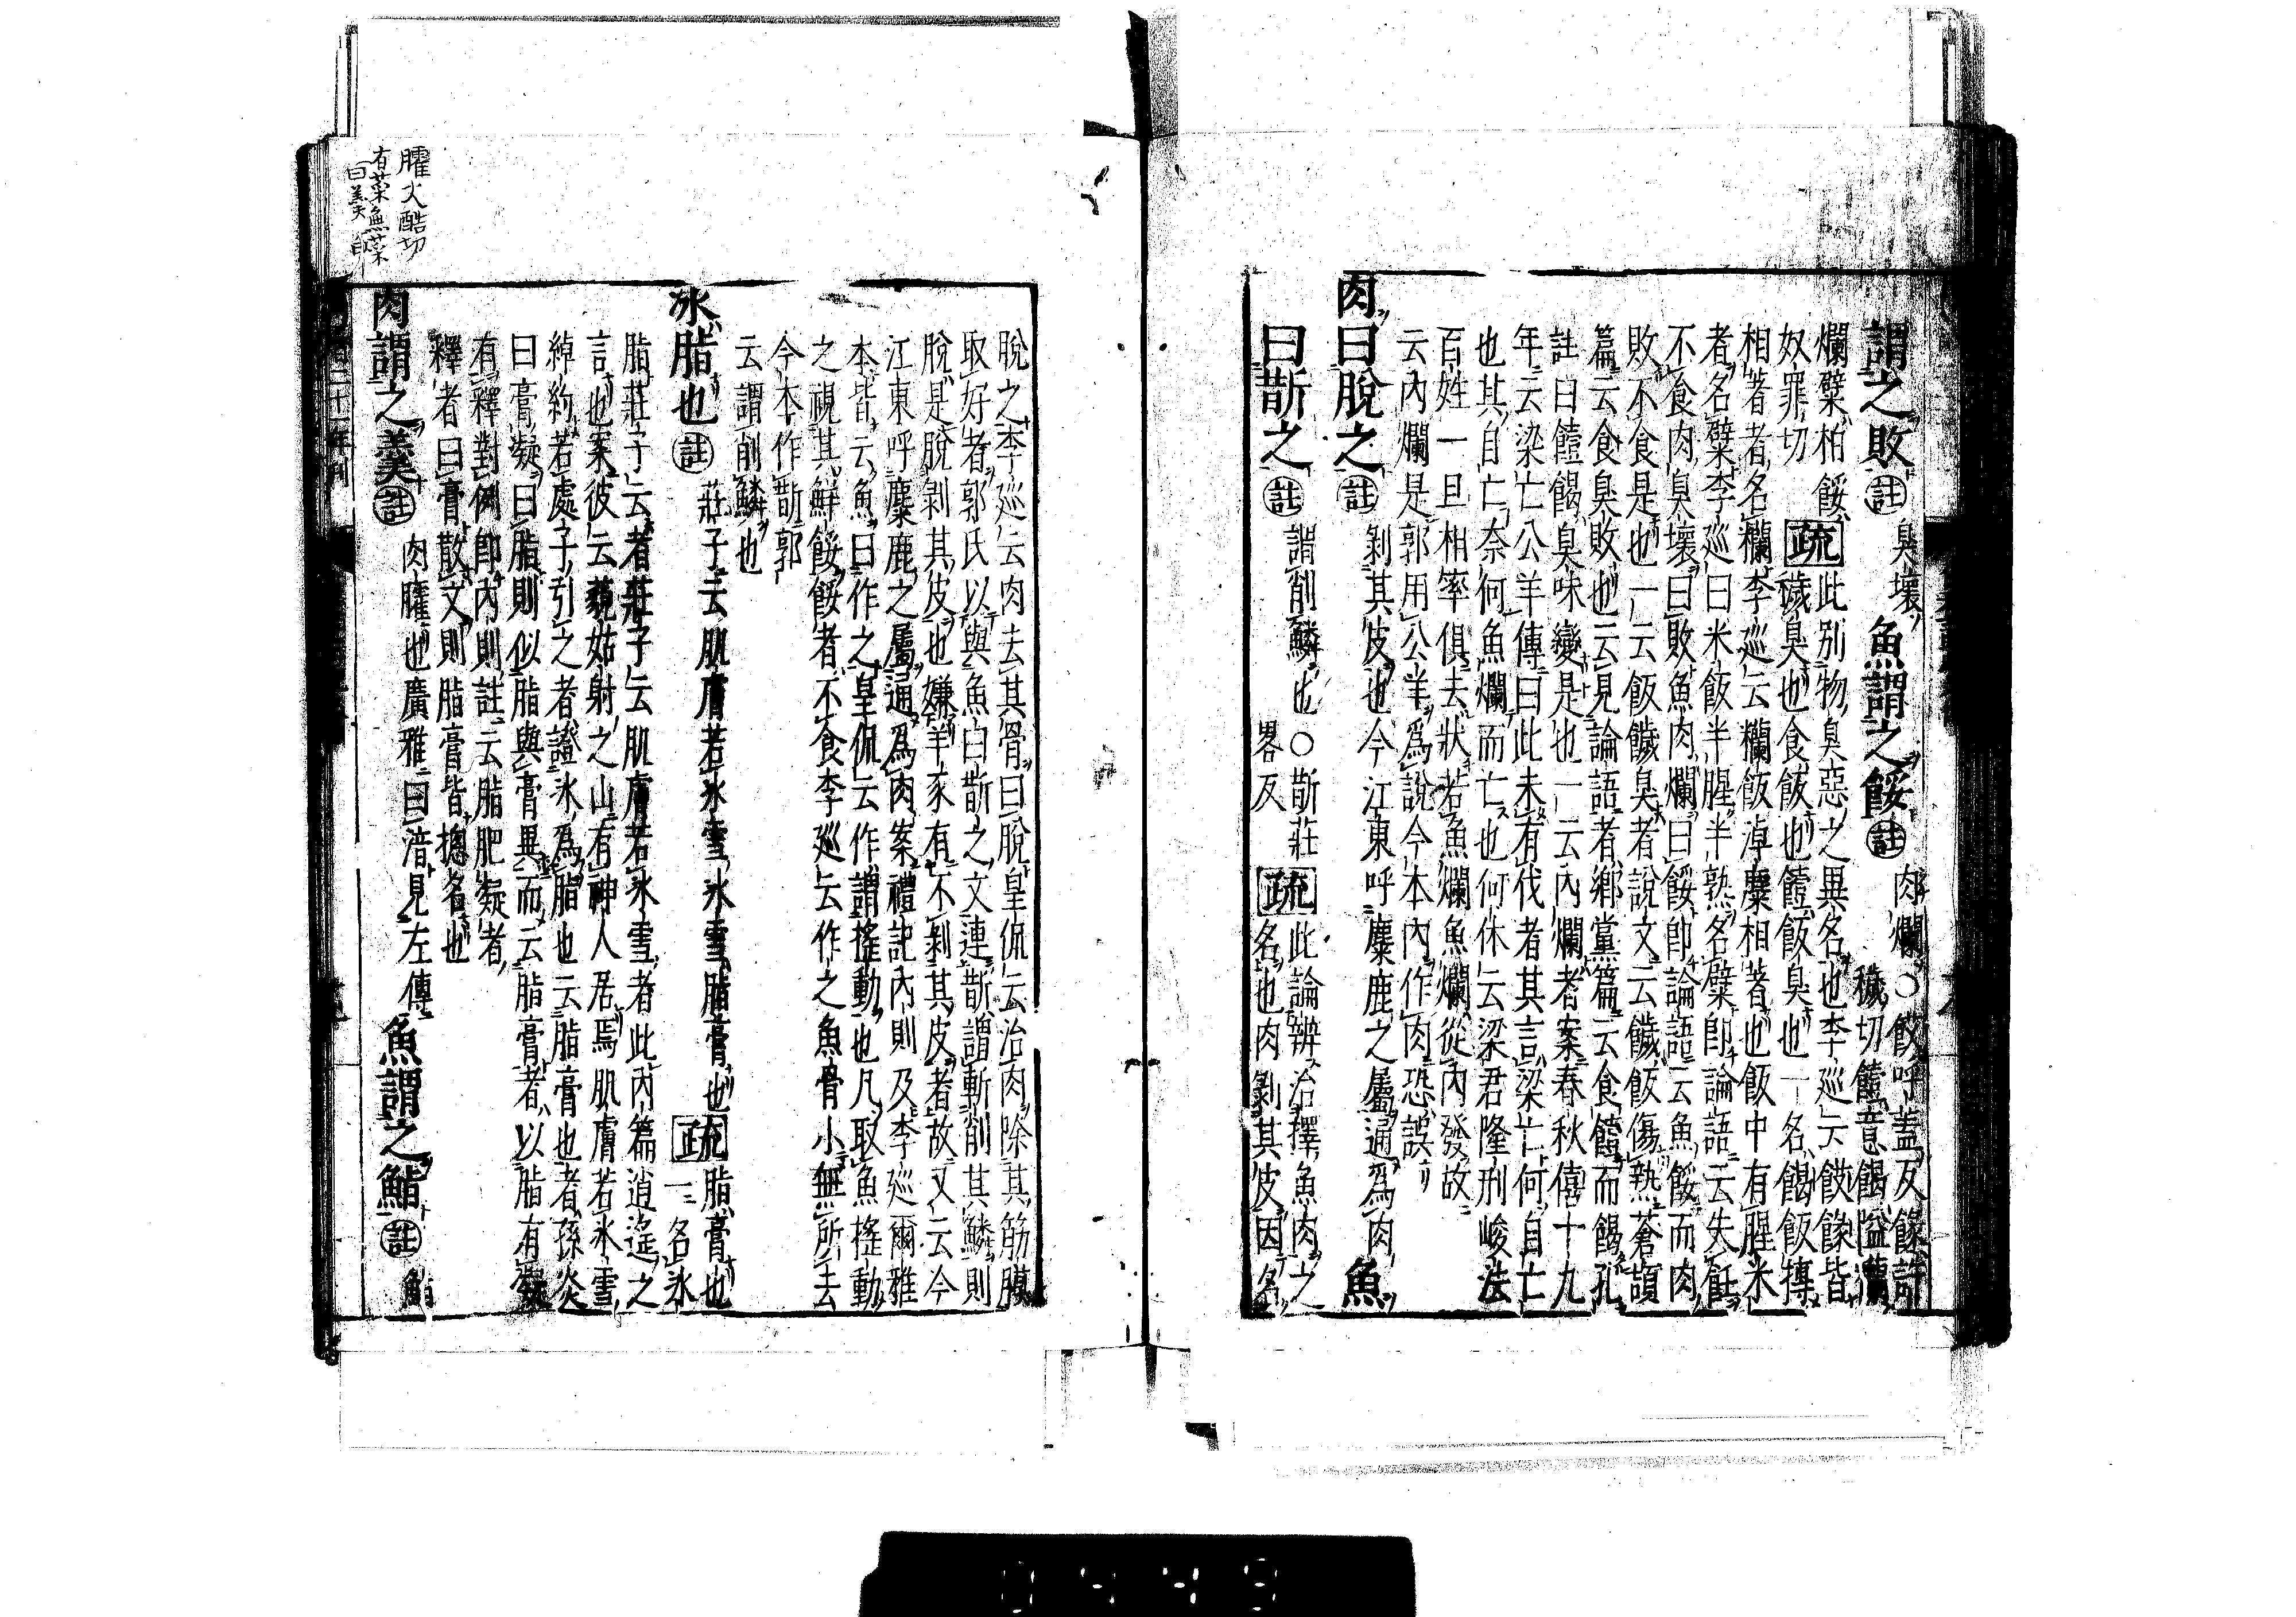 謂之敗註臭壞魚謂之餒註肉爛〇餀呼蓋反餯許
穢切饐意餲隘瀾
爛糪柏餒
奴罪切疏此別物臭惡之異名也李巡云餀餯皆
穢臭也食飯也饐飯臭也一名餲飯摶
相著者名糷李巡云糷飯淖麋相著也飯中有腥米
者名糪李巡曰米飯半腥半熟名糪卽論語云失飪
不食肉臭壞曰敗魚肉爛曰餒卽論語云魚餒而肉
敗不食是也一云飯饖臭者說文云饖飯傷熟蒼頡
篇云食臭敗也云見論語者鄉黨篇云食饐而餲孔
註曰饐餲臭味變是也一云內爛者案春秋僖十九
年云梁亡公羊傳曰此未有伐者其言梁亡何自亡
也其自亡奈何魚爛而亡也何休云梁君隆刑峻法
百姓一旦相率俱去狀若魚爛魚爛從內發故
云內爛是郭用公羊爲說今本內作肉恐誤
肉曰脫之註剝其皮也今江東呼麋鹿之屬通爲肉魚
曰斮之註謂削鱗也〇斮莊
畧反疏此論辨治擇魚肉之
名也肉剝其皮因名
脫之李巡云肉去其骨曰脫皇侃云治肉除其筋膜
取好者郭氏以與魚曰斮之文連斮謂斬削其鱗則
脫是脫剝其皮也嫌羊豕有不剝其皮者故又云今
江東呼麋鹿之屬通爲肉案禮記內則及李巡爾雅
本皆云魚曰作之皇侃云作謂搖動也凡取魚搖動
之視其鮮餒餒者不食李巡云作之魚骨小無所去
今本作斮郭
云謂削鱗也
冰脂也註莊子云肌膚若冰雪冰雪脂膏也疏脂膏也
一名冰
脂莊子云者莊子云肌膚若冰雪者此內篇逍遙之
言也案彼云藐姑射之山有神人居焉肌膚若冰雪
綽約若處子引之者證冰爲脂也云脂膏也者孫炎
曰膏凝曰脂則似脂與膏異而云脂膏者以脂有凝
有釋對例卽內則註云脂肥凝者
釋者曰膏散文則脂膏皆摠名也
肉謂之羹註肉臛也廣雅曰湆見左傳魚謂之鮨註鮨
臛火酷切
有菜魚菜
曰羹